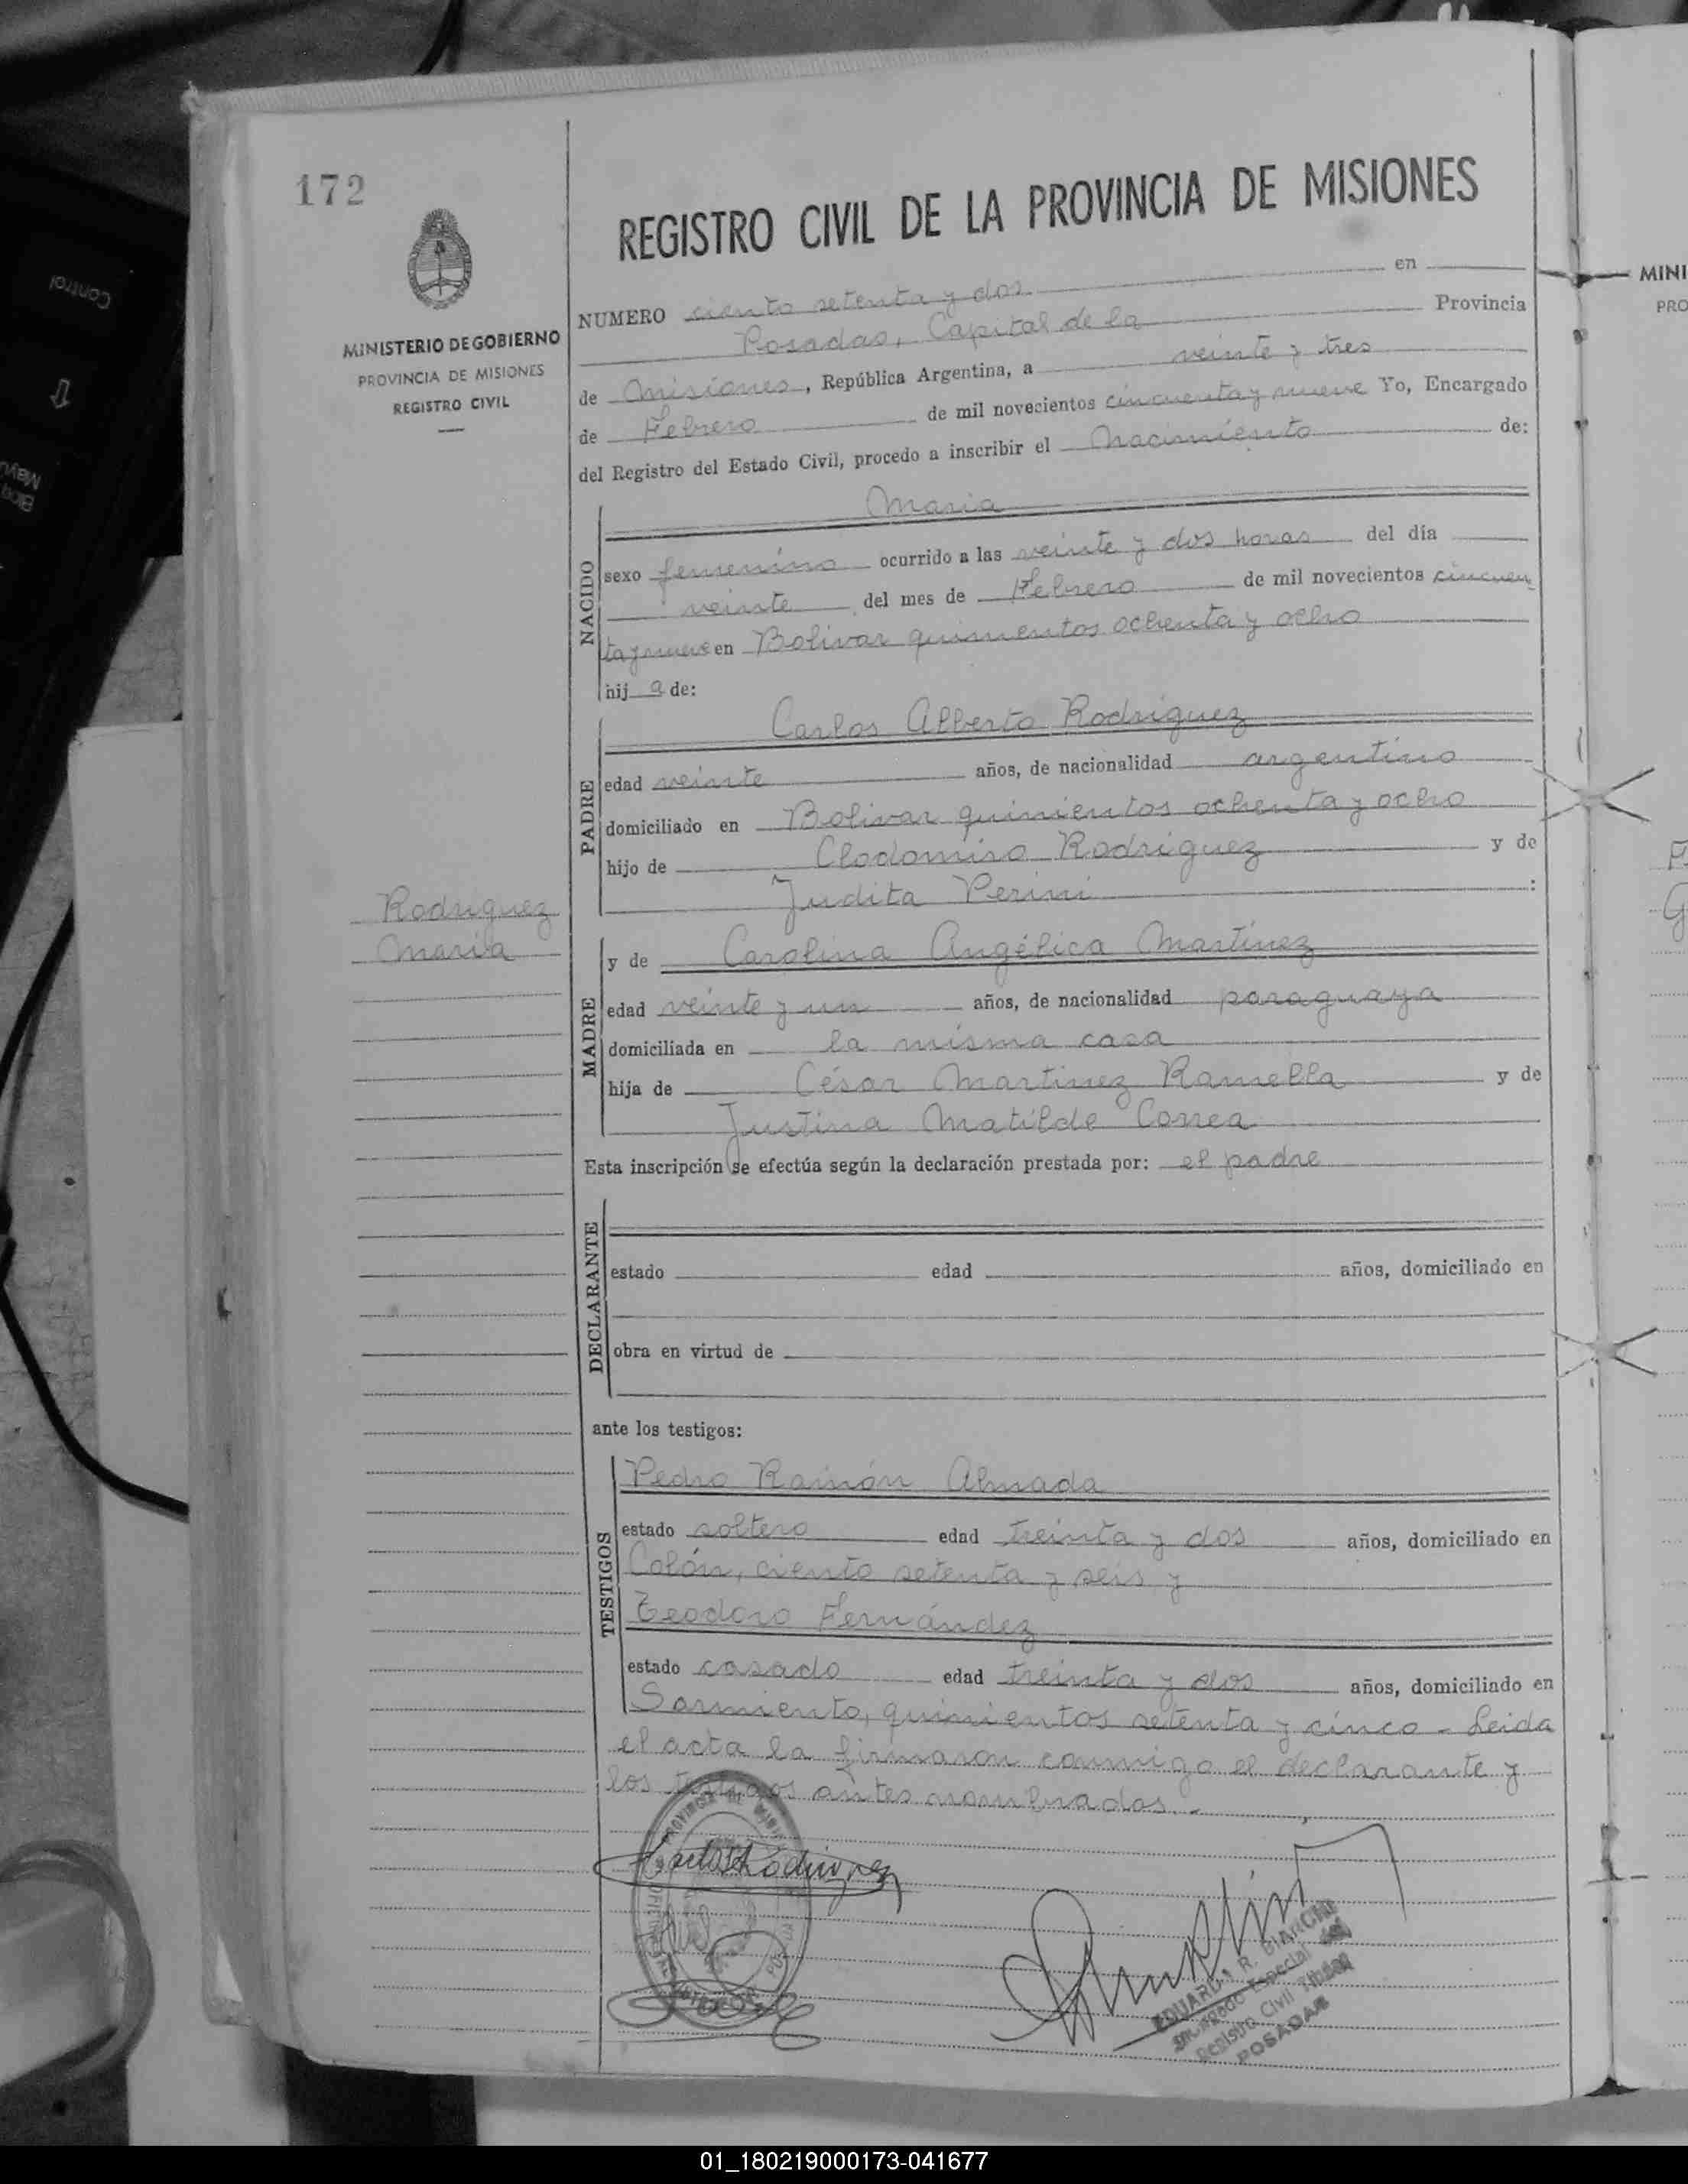 172
REGISTRO CIVIL DE LA PROVINCIA DE MISIONES
MINISTERIO DE GOBIERNO
PROVINCIA DE MISIONES
REGISTRO CIVIL
NUMERO ciento setenta y dos en
Posadas, Capital de la Provincia
de Misiones, República Argentina, a veinte y tres
de Febrero de mil novecientos cincuenta y nueve Yo, Encargado
del Registro del Estado Civil, procedo a inscribir el Nacimiento de:
NACIDO
Maria
sexo femenino ocurrido a las veinte y dos horas del día
veinte del mes de Febrero de mil novecientos cincuen
ta y nueve en Bolivar quinientos ochenta y ocho
hij a de:
PADRE
Carlos Alberto Rodriguez
edad veinte años, de nacionalidad argentino
domiciliado en Bolivar quinientos ochenta y ocho
hijo de Clodomiro Rodriguez y de
Judita Perini :
Rodriguez
Maria
MADRE
y de Carolina Angélica Martínez
edad veinte y un años, de nacionalidad paraguaya
domiciliada en la misma casa
hija de César Martinez Ramella y de
Justina Matilde Correa
Esta inscripción se efectúa según la declaración prestada por: el padre
DECLARANTE
estado edad años, domiciliado en
obra en virtud de
ante los testigos:
TESTIGOS
Pedro Ramón Almada
estado soltero edad treinta y dos años, domiciliado en
Colón, ciento setenta y seis y
Teodoro Fernández
estado casado edad treinta y dos años, domiciliado en
Sarmiento, quinientos setenta y cinco - Leida
el acta la firmaron conmigo el declarante y
los testigos antes nombrados. -
Carlos A Rodriguez
EDUARDO R. BIANCHI
Encargado Especial del
Registro Civil
POSADAS
MINI
PRO
Control
Bloq
Mayús
01_180219000173-041677